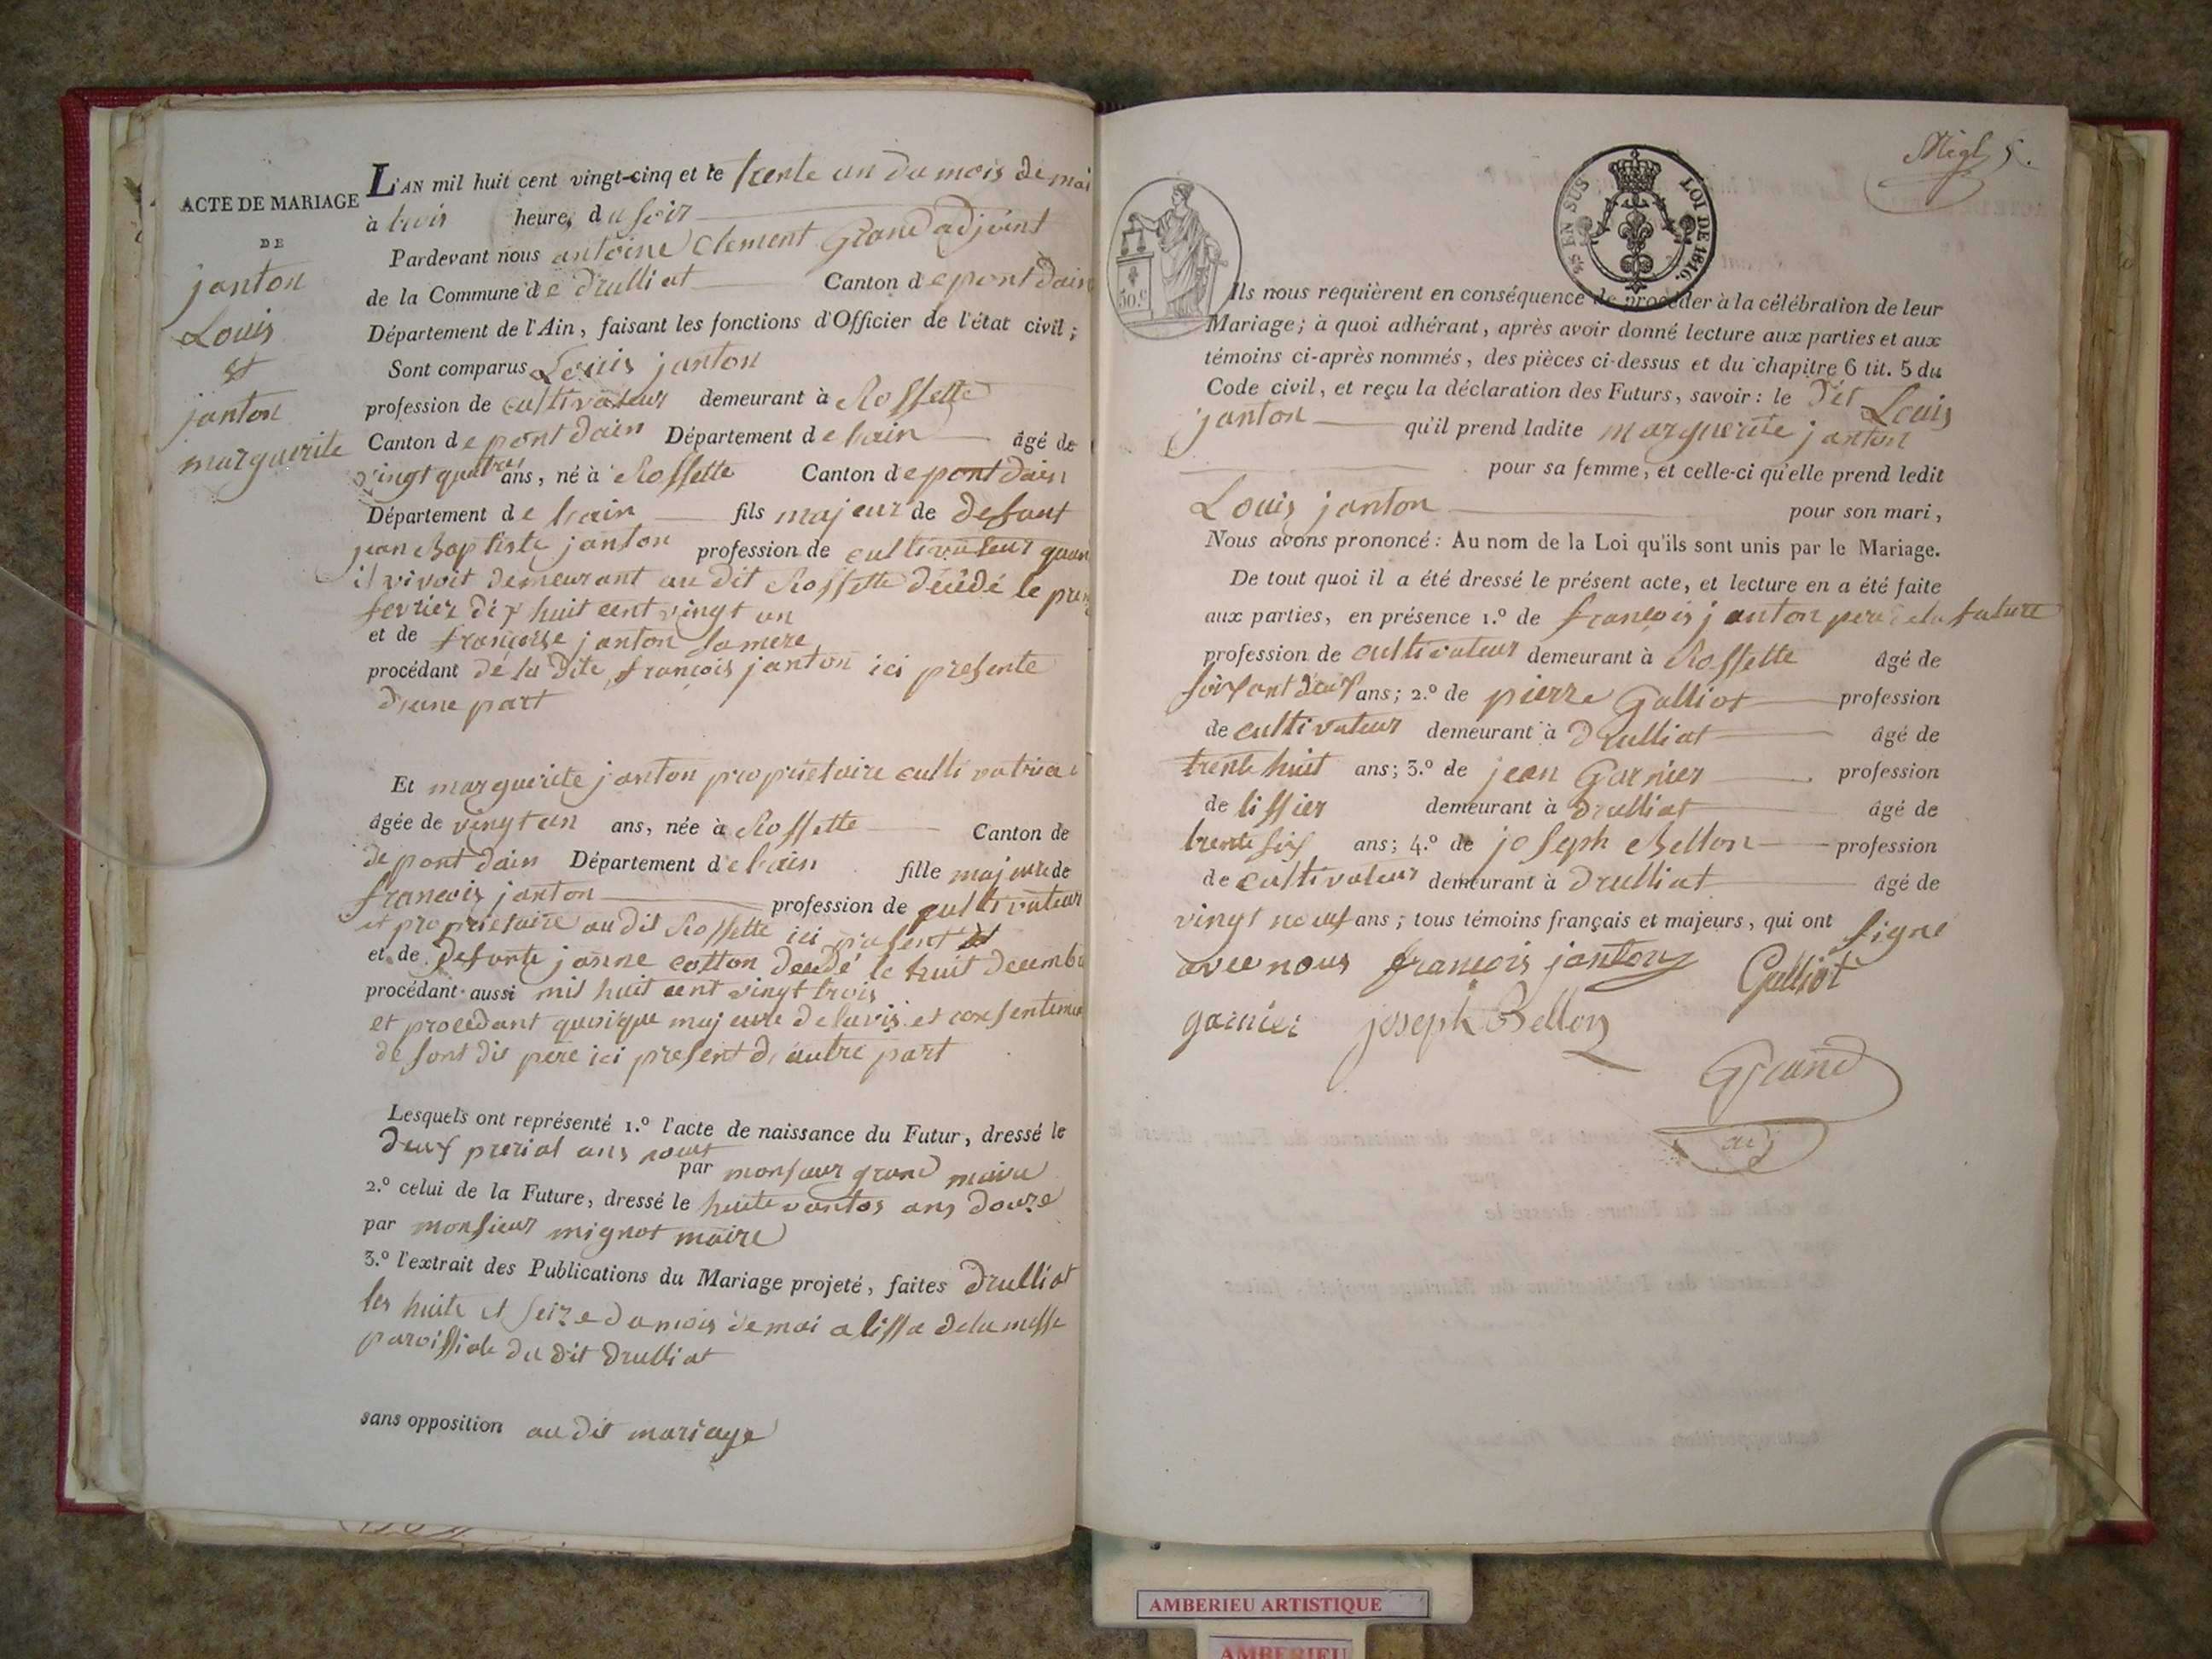 ACTE DE MARIAGE
DE
janton
Louis
et
janton
marguerite
L'AN mil huit cent vingt-cinq et le trente un du mois de mai
à trois heures du soir
Pardevant nous antoine Clement Grand adjoint
de la Commune de druilliat Canton de pont dain
Département de l'Ain, faisant les fonctions d'Officier de l'état civil;
Sont comparus Louis janton
profession de cultivateur demeurant à Rossette
Canton de pont dain Département de lain âgé de
vingt quatres ans, né à Rossette Canton de pont dain
Département de lain fils majeur de defunt
jean Baptiste janton profession de cultivateur quan
il vivoit demeurant au dit Rossette décédé le
fevrier dix huit cent vingt un
et de françoise janton sa mere
procédant de la dite françois janton ici presente
d'une part
Et marguerite janton proprietaire cultivatrice
âgée de vingt un ans, née à Rossette Canton de
de pont dain Département de lain fille majeure de
francois janton profession de cultivateur
et proprietaire au dit Rossette ici présent et
et de defunte janne cotton décédé le huit décembre
procédant aussi mil huit cent vingt trois
et procedant quoique majeure de lavis et consentement
de sont dit père ici present d'autre part
Lesquels ont représenté 1.º l'acte de naissance du Futur, dressé le
deux prerial ans neuf
par monsieur grand maire
2.º celui de la Future, dressé le huite vantos ans douze
par monsieur mignot maire
3.º l'extrait des Publications du Mariage projeté, faites druilliat
les huite et seize du mois de mai a lissa de la messe
paroissiale du dit druilliat
sans opposition au dit mariage
EN SUS
LOI DE 1816.
50 c
Ils nous requièrent en conséquence de procéder à la célébration de leur
Mariage; à quoi adhérant, après avoir donné lecture aux parties et aux
témoins ci-après nommés, des pièces ci-dessus et du chapitre 6 tit. 5 du
Code civil, et reçu la déclaration des Futurs, savoir: le dit Louis
janton qu'il prend ladite marguerite janton
pour sa femme, et celle-ci qu'elle prend ledit
Louis janton pour son mari,
Nous avons prononcé: Au nom de la Loi qu'ils sont unis par le Mariage.
De tout quoi il a été dressé le présent acte, et lecture en a été faite
aux parties, en présence 1.º de françois janton pere de la future
profession de cultivateur demeurant à Rossette âgé de
soixant deux ans; 2.º de pierre Galliot profession
de cultivateur demeurant à druilliat âgé de
trente huit ans; 3.º de jean Garnier profession
de tissier demeurant à druilliat âgé de
trente six ans; 4.º de joseph Bellon profession
de cultivateur demeurant à druilliat âgé de
vingt neuf ans; tous témoins français et majeurs, qui ont signé
avec nous françois janton Galliot
garnier joseph Bellon
Grand
adj
AMBERIEU ARTISTIQUE
AMBERIEU